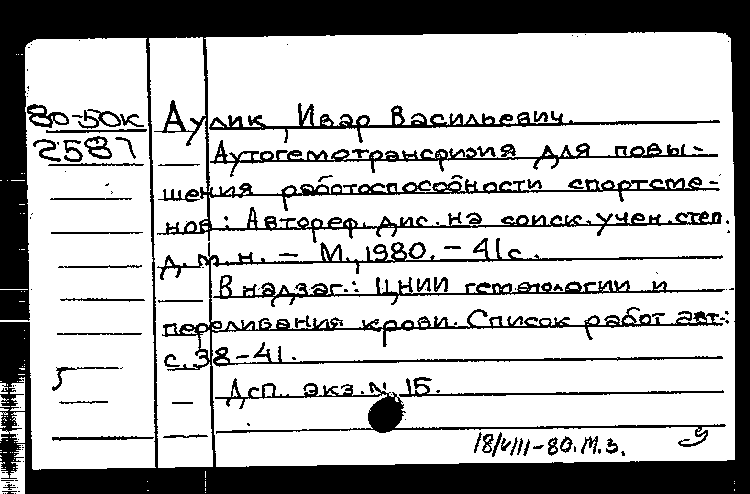 80-50к Аулик, Ивар Васильевич.
2587 Аутогемотрансфузия для повы-
шения работоспособности спортсме-
нов: Автореф. дис. на соиск. учен. степ.
д. м. н. – М., 1980. – 41 с.
В надзаг.: ЦНИИ гематологии и
переливания крови. Список работ авт.:
с. 38-41.
Дсп. экз. N 15.
18/VIII-80. М.З.